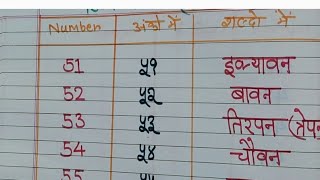 Number अंको में शब्दो में
51 ५१ इक्यावन
52 ५२ बावन
53 ५३ तिरपन (त्रेपन
54 ५४ चौवन
55 ५५